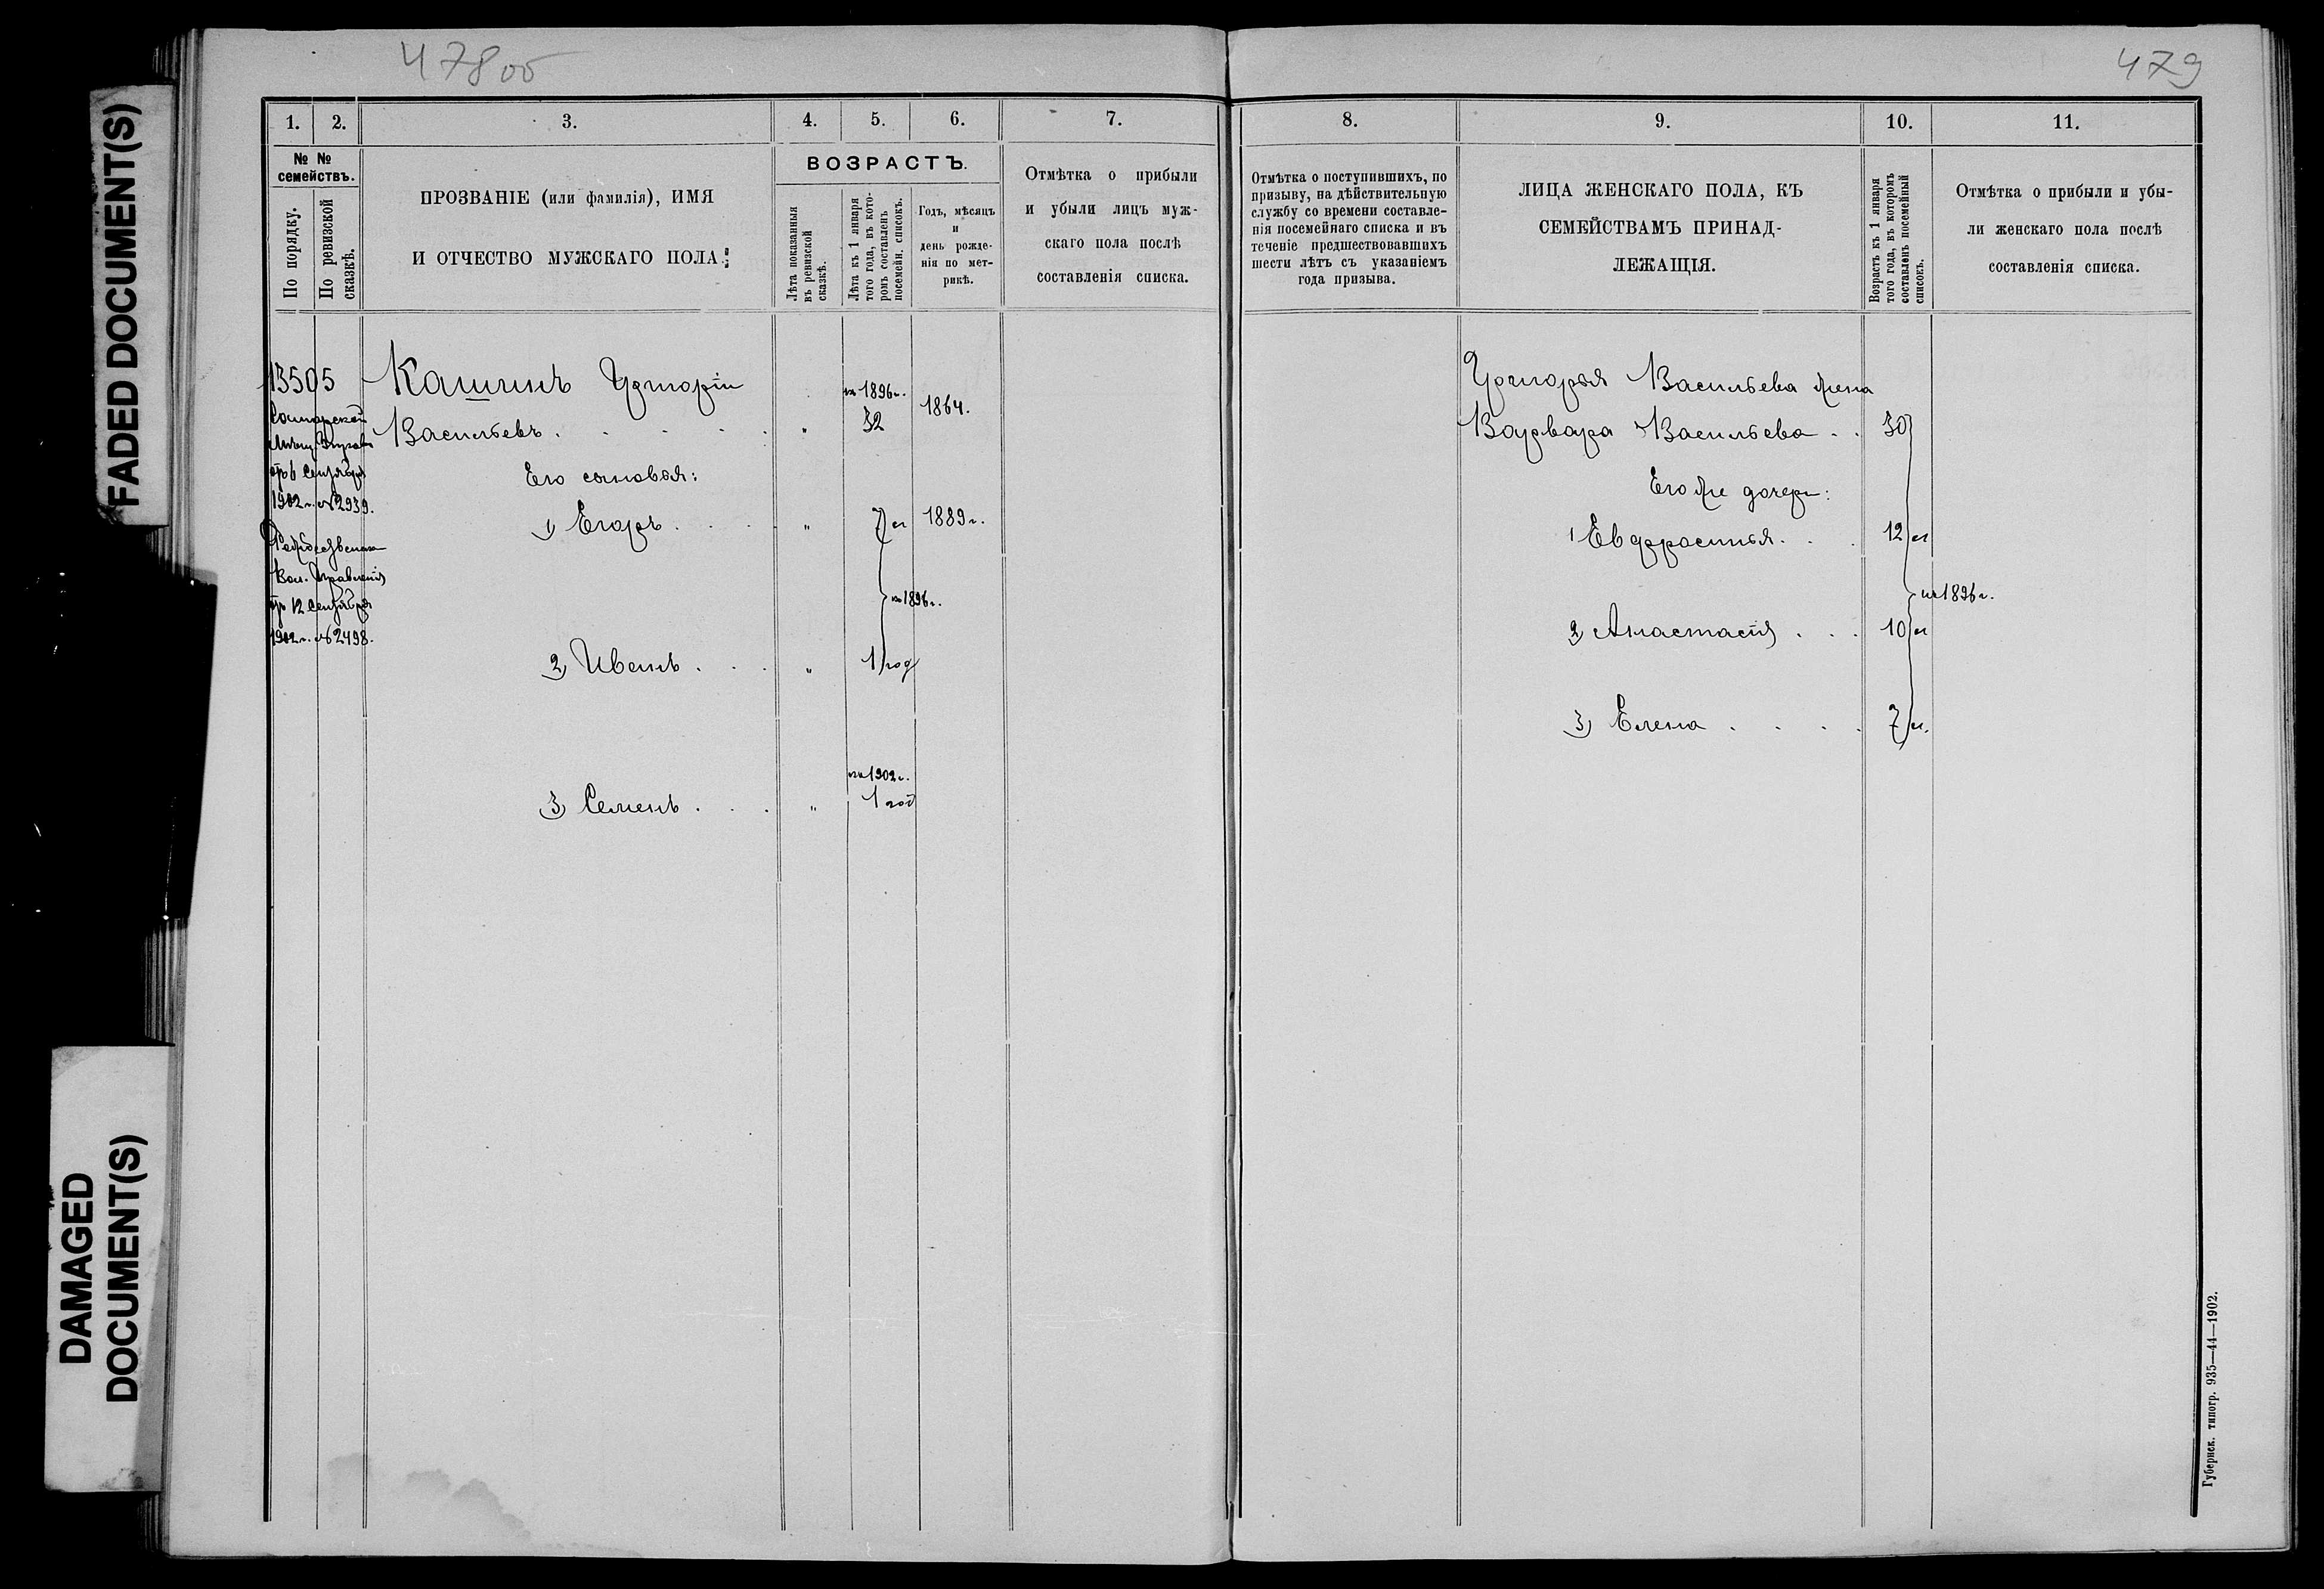 478об
479
1. 2. 3. 4. 5. 6. 7.
№ №
семействъ.
По порядку.
По ревизской
сказкѣ.
ПРОЗВАНІЕ (или фамилія), ИМЯ
И ОТЧЕСТВО МУЖСКАГО ПОЛА:
ВОЗРАСТЪ.
Лѣта показанныя
въ ревизской
сказкѣ.
Лѣта къ 1 января
того года, въ кото-
ромъ составленъ
посемейн. списокъ.
Годъ, мѣсяцъ
и
день рожде-
нія по мет-
рикѣ.
Отмѣтка о прибыли
и убыли лицъ муж-
скаго пола послѣ
составленія списка.
8. 9. 10. 11.
Отмѣтка о поступившихъ, по
призыву, на дѣйствительную
службу со времени составле-
нія посемейнаго списка и въ
теченіе предшествовавшихъ
шести лѣтъ съ указаніемъ
года призыва.
ЛИЦА ЖЕНСКАГО ПОЛА, КЪ
СЕМЕЙСТВАМЪ ПРИНАД-
ЛЕЖАЩІЯ.
Возрастъ къ 1 января
того года, въ которомъ
составленъ посемейный
списокъ.
Отмѣтка о прибыли и убы-
ли женскаго пола послѣ
составленія списка.
13505
Самарской
Мѣщ. Управы
отъ 6 Сентября
1902 г. № 2939.
Рождественск
Вол. Правленія
отъ 12 Сентября
1902 г. № 2498.
Кашинъ
на 1896 г.
Васильевъ . . . . . " 32 1864.
Его сыновья:
1) Егоръ . . . " 7 л 1889 г.
на 1896 г.
2) Иванъ . . . " 1 год
на 1902 г.
3) Семенъ . . . " 1 год
Васильева жена
Варвара Васильева . . 30
Его же дочери:
1 Евфрасинья . . . 12 л
на 1896 г.
2) Анастасія . . . 10 л
3) Елена . . . . 7 л.
Губернск. типогр. 935—44—1902.
FADED DOCUMENT(S)
DAMAGED
DOCUMENT(S)